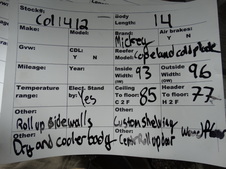 Stock#: Col1412 Body Length: 14
Make: Model: Brand: Mickey Air brakes? Y N
Gvw: CDL: Y N Reefer Model: Copeland cold plate
Mileage: Year: Inside Width: (W) 93 Outside Width: (W) 96
Temperature range: Elect. Stand by: Yes Ceiling To floor: H 2 F 85 Header To floor: H 2 F 77
Other: Roll up sidewalls Other: Custom Shelving
Other: Dry and cooler body Other: Center Roll up door